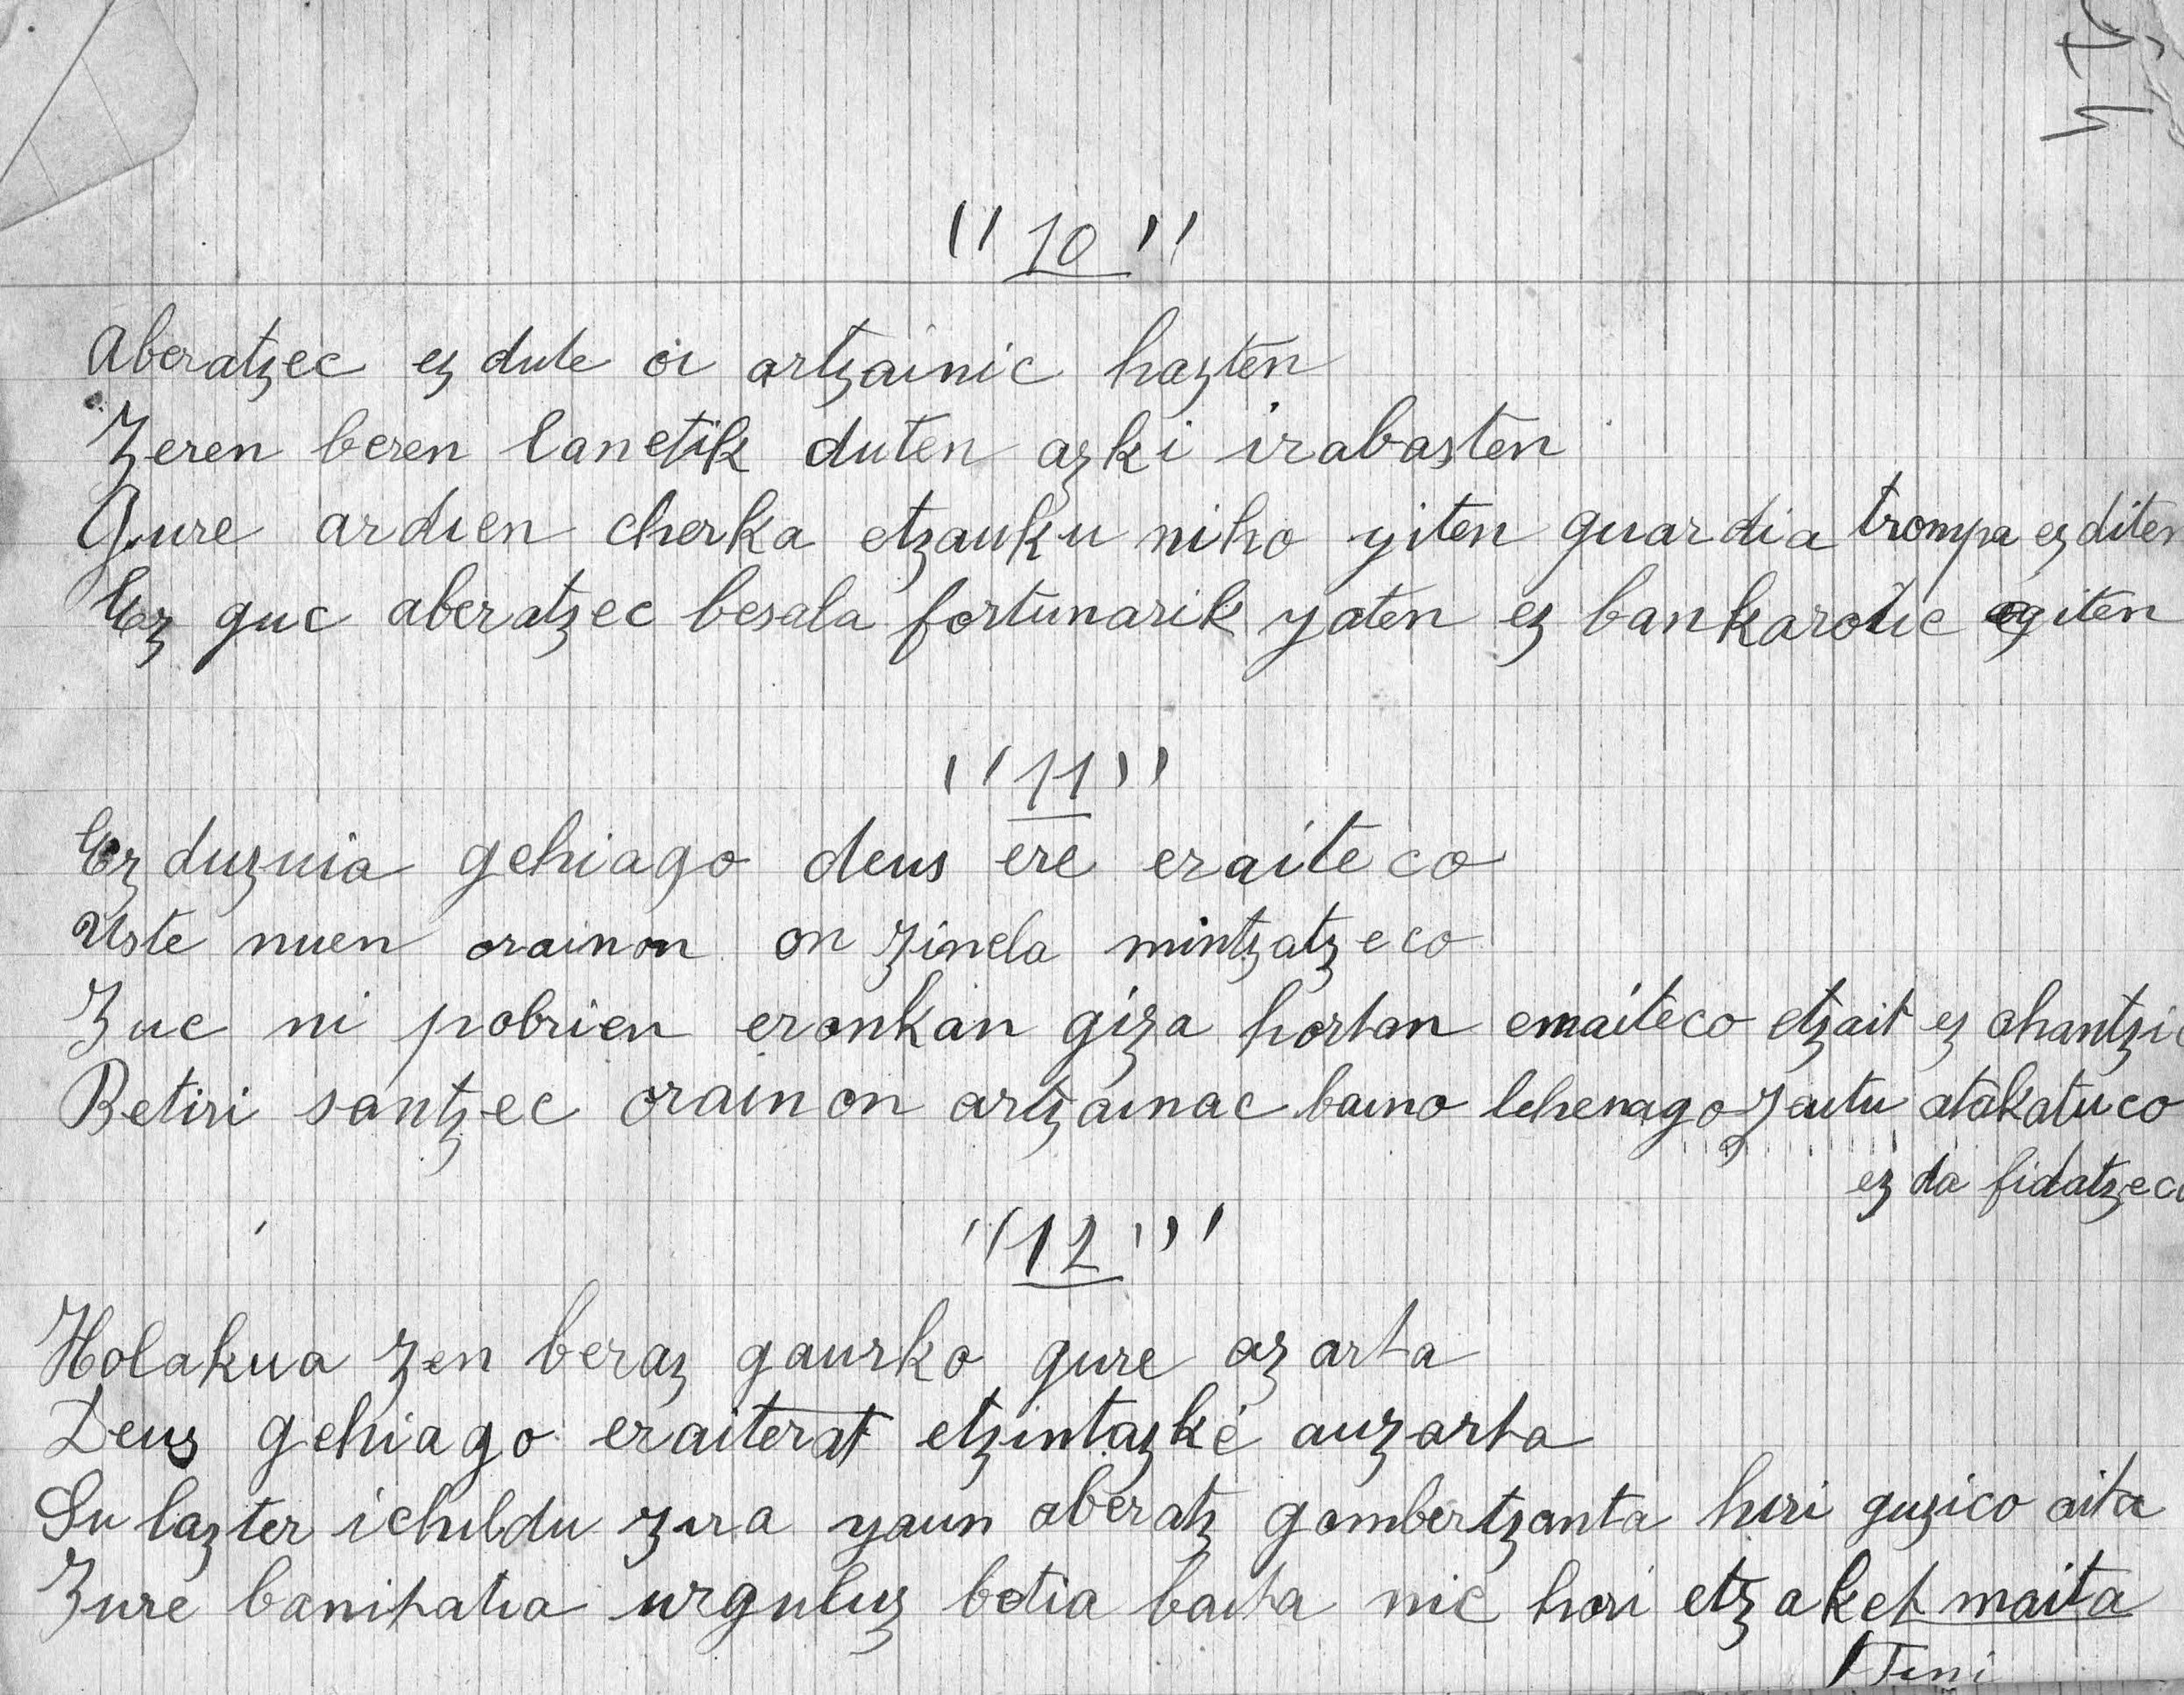 "10"
Aberatzec ez dute oi artzainic hazten
Zeren beren lanetik duten azki irabasten
Gure ardien cherka etzauku niho yiten guardia trompa ez diten
Ez guc aberatzec besala fortunarik yaten ez bankarotic egiten
"11"
Ez duzuia gehiago deus ere eraiteco
Uste nuen orainon on zinela mintzatzeco
Zuc ni pobrien eronkan giza hortan emaiteco etzait ez ahantzic
Betiri santzec orainon artzainac baino lehenago zaitu atakatuco
ez da fidatzeco
"12"
Holakua zen beraz gaurko gure az arta
Deus gehiago eraiterat etzintazké auzarta
Su lazter ichildu zira yaun aberatz gombertzanta hiri guzico aita
Zure banitatia urguluz betia baita nic hori etzaket maita